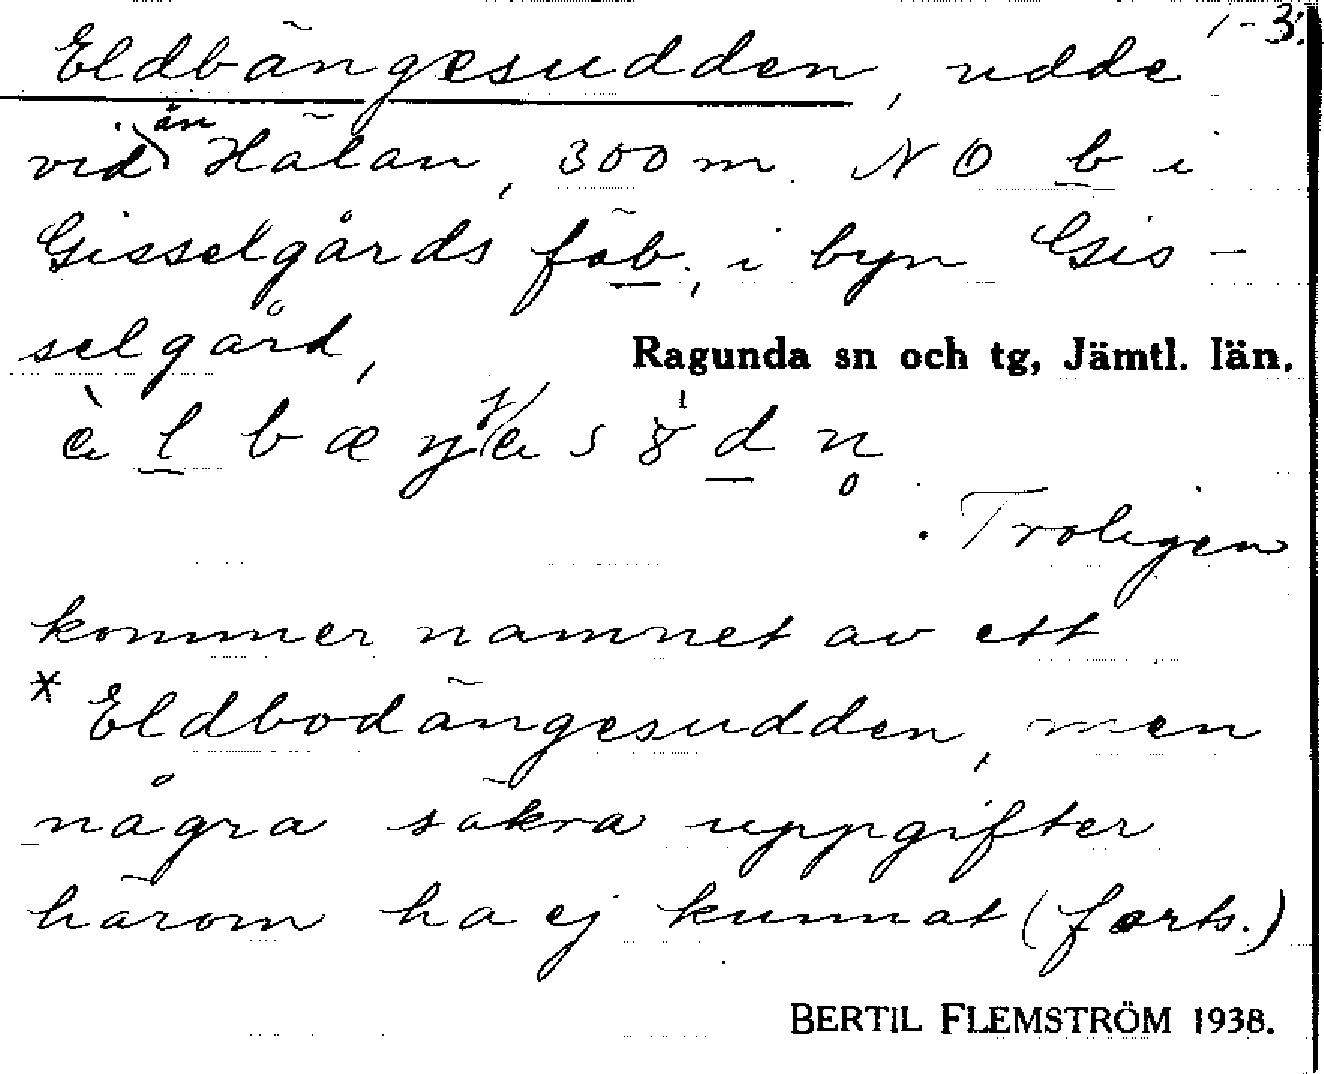 1-3.
Eldbängesudden, udde
vid ån Hälan, 300 m. NO b i
Gisselgårds fäb., i byn Gis-
selgård,
Ragunda sn och tg, Jämtl. län.
. Troligen
kommer namnet av ett
* Eldbodängesudden, men
några säkra uppgifter
härom ha ej kunnat (forts.)
BERTIL FLEMSTRÖM 1938.